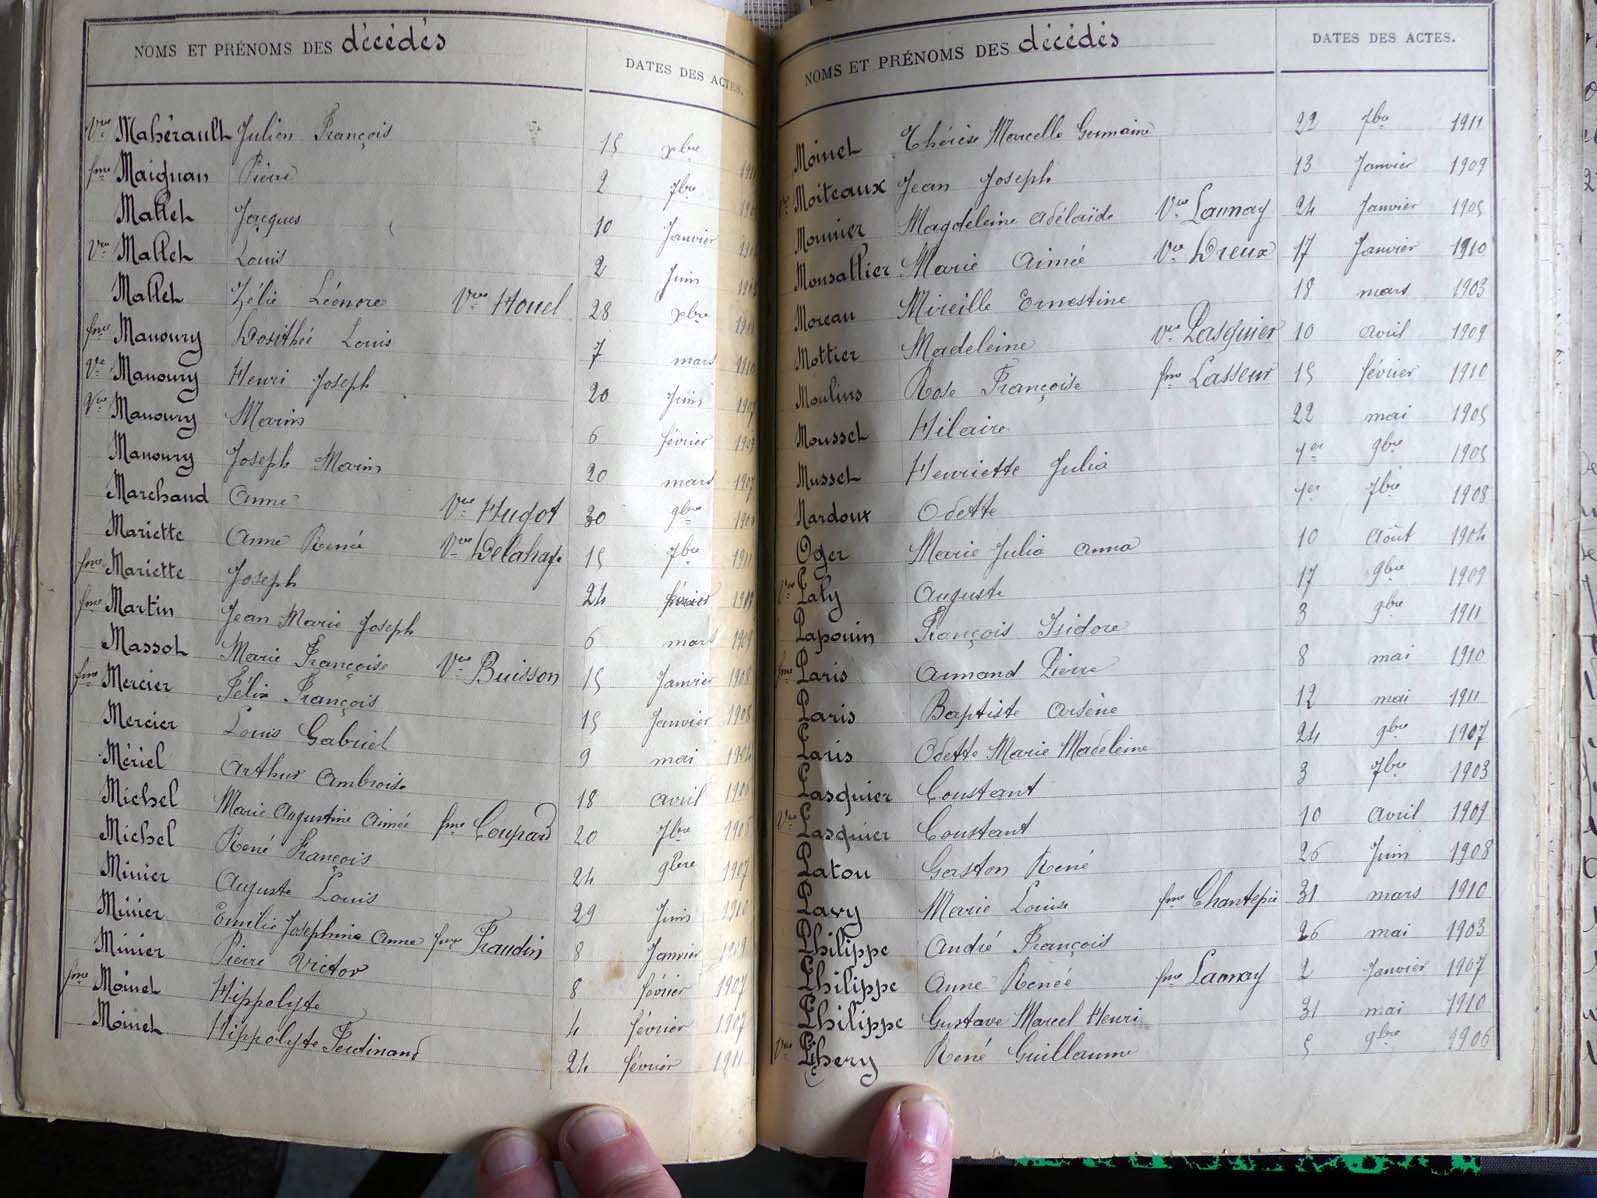 NOMS ET PRÉNOMS DES décédés DATES DES ACTES.
Vve Mahérault Julien François 15 xbre
fme Maignan Pierre 2 7bre
Mallet Jacques 10 Janvier
Vve Mallet Louis 2 Juin
Mallet Zélie Léonore Vve Houel 28 xbre
fme Manoury Dosithé Louis 7 mars 1910
Vve Manoury Henri Joseph 20 Juin 1907
Vve Manoury Marin 6 février 1903
Manoury Joseph Marin 20 mars 1907
Marchand Anne Vve Hugot 30 9bre
Mariette Anne Renée Vve Delahaye 15 7bre 1911
fme Mariette Joseph 24 février
fme Martin Jean Marie Joseph 6 mars 1909
Massot Marie Françoise Vve Buisson 15 Janvier 1908
fme Mercier Félix François 15 Janvier 1908
Mercier Louis Gabriel 9 mai 1904
Mériel Arthur Ambroise 18 avril
Michel Marie Augustine Aimée fme Coupard 20 7bre
Michel René François 24 9bre 1907
Minier Auguste Louis 29 Juin 1910
Minier Emilie Joséphine Anne fme Fraudin 8 Janvier
Minier Pierre Victor 8 février 1907
fme Moinet Hippolyte 4 février 1907
Moinet Hippolyte Ferdinand 24 février 1911
NOMS ET PRÉNOMS DES décédés DATES DES ACTES.
Moinet Thérèse Marcelle Germaine 22 7bre 1911
Vve Moiteaux Jean Joseph 13 Janvier 1909
Monnier Magdeleine Adélaïde Vve Launay 24 Janvier 1905
Monsallier Marie Aimée Vve Dreux 17 Janvier 1910
Moreau Mireille Ernestine 18 mars 1903
Mottier Madeleine Vve Pasquier 10 avril 1909
Moulins Rose Françoise fme Lasseur 15 février 1910
Mousset Hilaire 22 mai 1905
Musset Henriette Julia 1er 9bre 1905
Nardoux Odette 1er 7bre 1908
Oger Marie Julia Anna 10 Août 1904
Vve Paly Auguste 17 9bre 1909
Papouin François Isidore 3 9bre 1911
fme Paris Armand Pierre 8 mai 1910
Paris Baptiste Arsène 12 mai 1911
Paris Odette Marie Madeleine 24 9bre 1907
Pasquier Constant 3 7bre 1903
Vve Pasquier Constant 10 avril 1909
Patou Gaston René 26 Juin 1908
Pavy Marie Louise fme Chantepie 31 mars 1910
Philippe André François 26 mai 1903
Philippe Anne Renée fme Launay 2 Janvier 1907
Philippe Gustave Marcel Henri 31 mai 1910
Vve Phery René Guillaume 5 9bre 1906